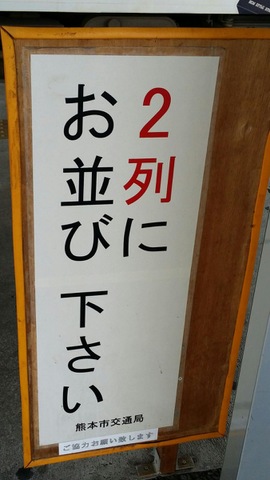 2列に
お並び下さい
熊本市交通局
ご協力お願い致します